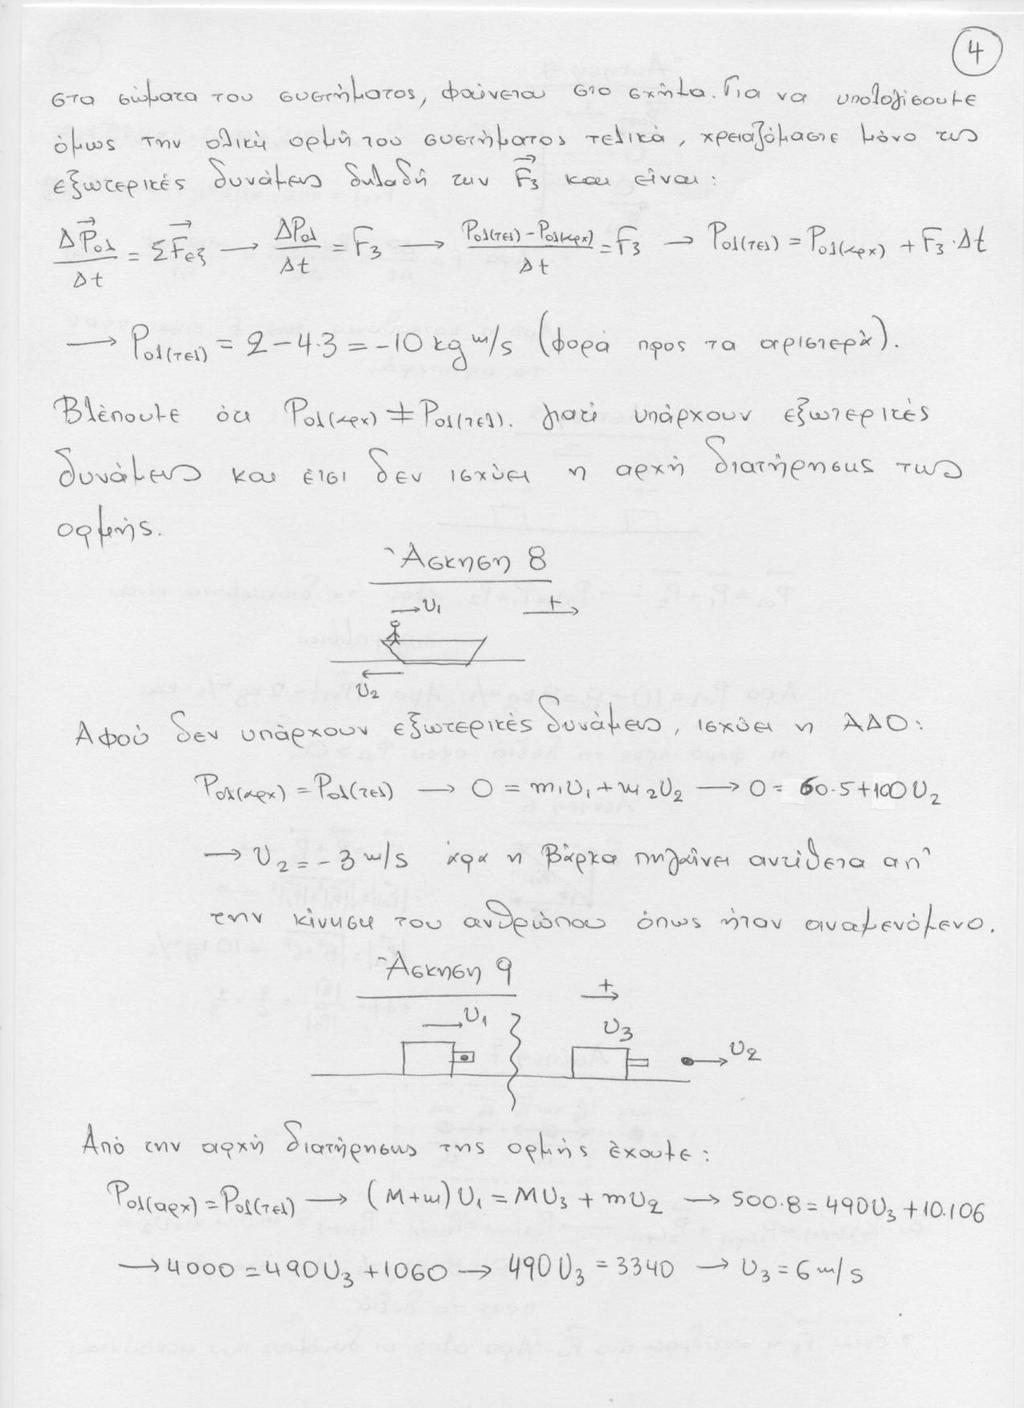 4
στα σώματα του συστήματος, φαίνεται στο σχήμα. Για να υπολογίσουμε
όμως την ολική ορμή του συστήματος τελικά, χρειαζόμαστε μόνο τις
εξωτερικές δυνάμεις δηλαδή την F⃗₃ και είναι:
ΔP⃗ολ/Δt = ΣF⃗εξ → ΔPολ/Δt = F₃ → (Pολ(τελ) - Pολ(αρχ))/Δt = F₃ → Pολ(τελ) = Pολ(αρχ) + F₃·Δt
→ Pολ(τελ) = 2 - 4·3 = -10 kg m/s (φορά προς τα αριστερά).
Βλέπουμε ότι Pολ(αρχ) ≠ Pολ(τελ). γιατί υπάρχουν εξωτερικές
δυνάμεις και έτσι δεν ισχύει η αρχή διατήρησης της
ορμής.
Άσκηση 8
→υ₁ +
υ₂
Αφού δεν υπάρχουν εξωτερικές δυνάμεις, ισχύει η ΑΔΟ:
Pολ(αρχ) = Pολ(τελ) → 0 = m₁υ₁ + m₂υ₂ → 0 = 60·5+100υ₂
→ υ₂ = -3 m/s άρα η βάρκα πηγαίνει αντίθετα απ'
την κίνηση του ανθρώπου όπως ήταν αναμενόμενο.
Άσκηση 9
+
υ₁ υ₃ υ₂
Από την αρχή διατήρησης της ορμής έχουμε:
Pολ(αρχ) = Pολ(τελ) → (M+m)υ₁ = Mυ₃ + mυ₂ → 500·8 = 490υ₃ + 10·106
→ 4000 = 490υ₃ + 1060 → 490υ₃ = 3340 → υ₃ = 6 m/s